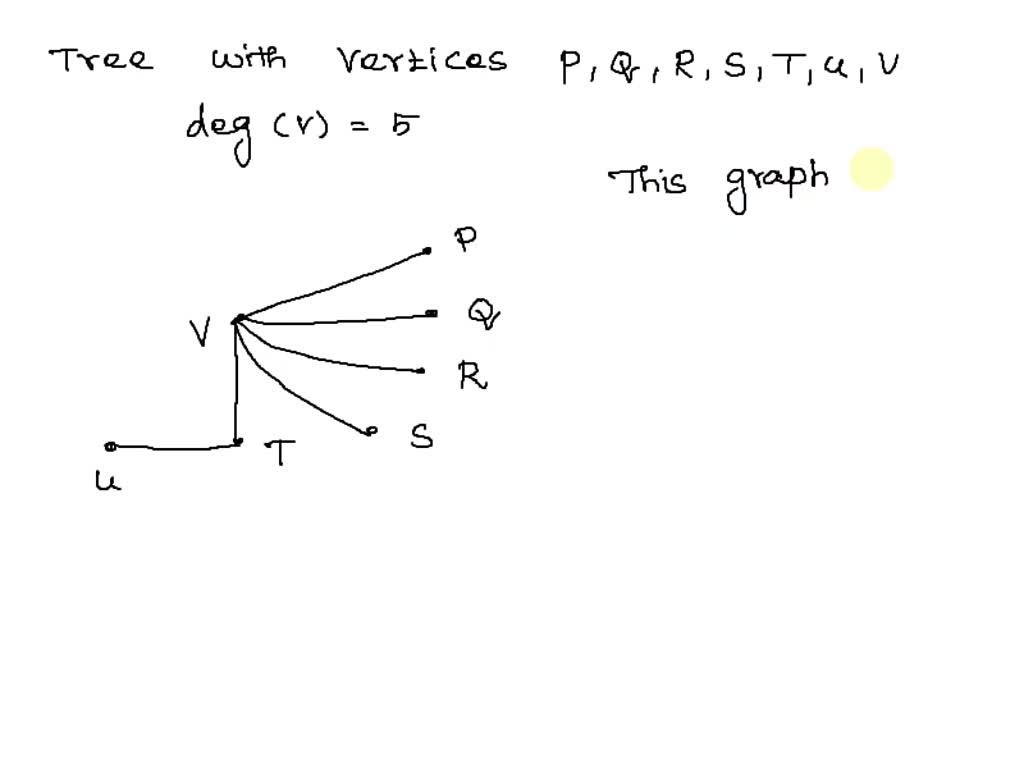 Tree with vertices P, Q, R, S, T, u, V
deg (v) = 5
This graph
P
V
Q
R
S
T
u